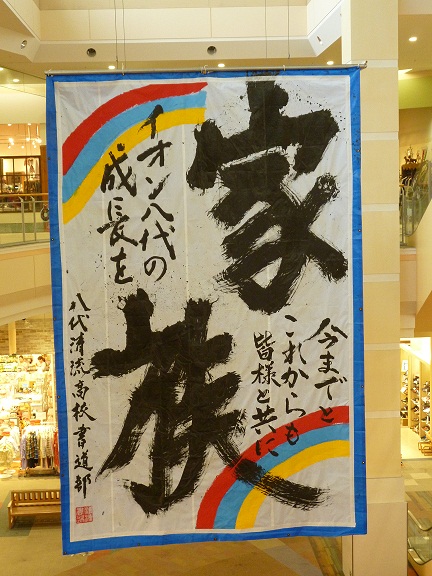 家族
今までと
これからも
皆様と共に
イオン八代の
成長を
八代清流高校書道部